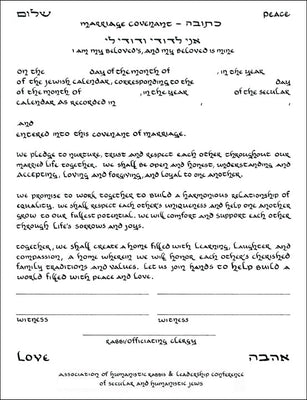 שלום peace
marriage covenant - כתובה
אני לדודי ודודי לי
I am my beloved's, and my beloved is mine
on the day of the month of , in the year
of the Jewish calendar, corresponding to the day
of the month of , in the year of the secular
calendar as recorded in ,
and
entered into this covenant of marriage.
we pledge to nurture, trust and respect each other throughout our
married life together. we shall be open and honest, understanding and
accepting, loving and forgiving, and loyal to one another.
we promise to work together to build a harmonious relationship of
equality. we shall respect each other's uniqueness and help one another
grow to our fullest potential. we will comfort and support each other
through life's sorrows and joys.
together, we shall create a home filled with learning, laughter and
compassion, a home wherein we will honor each other's cherished
family traditions and values. Let us join hands to help build a
world filled with peace and love.
witness witness
rabbi/officiating clergy
Love אהבה
association of humanistic rabbis & leadership conference
of secular and humanistic jews